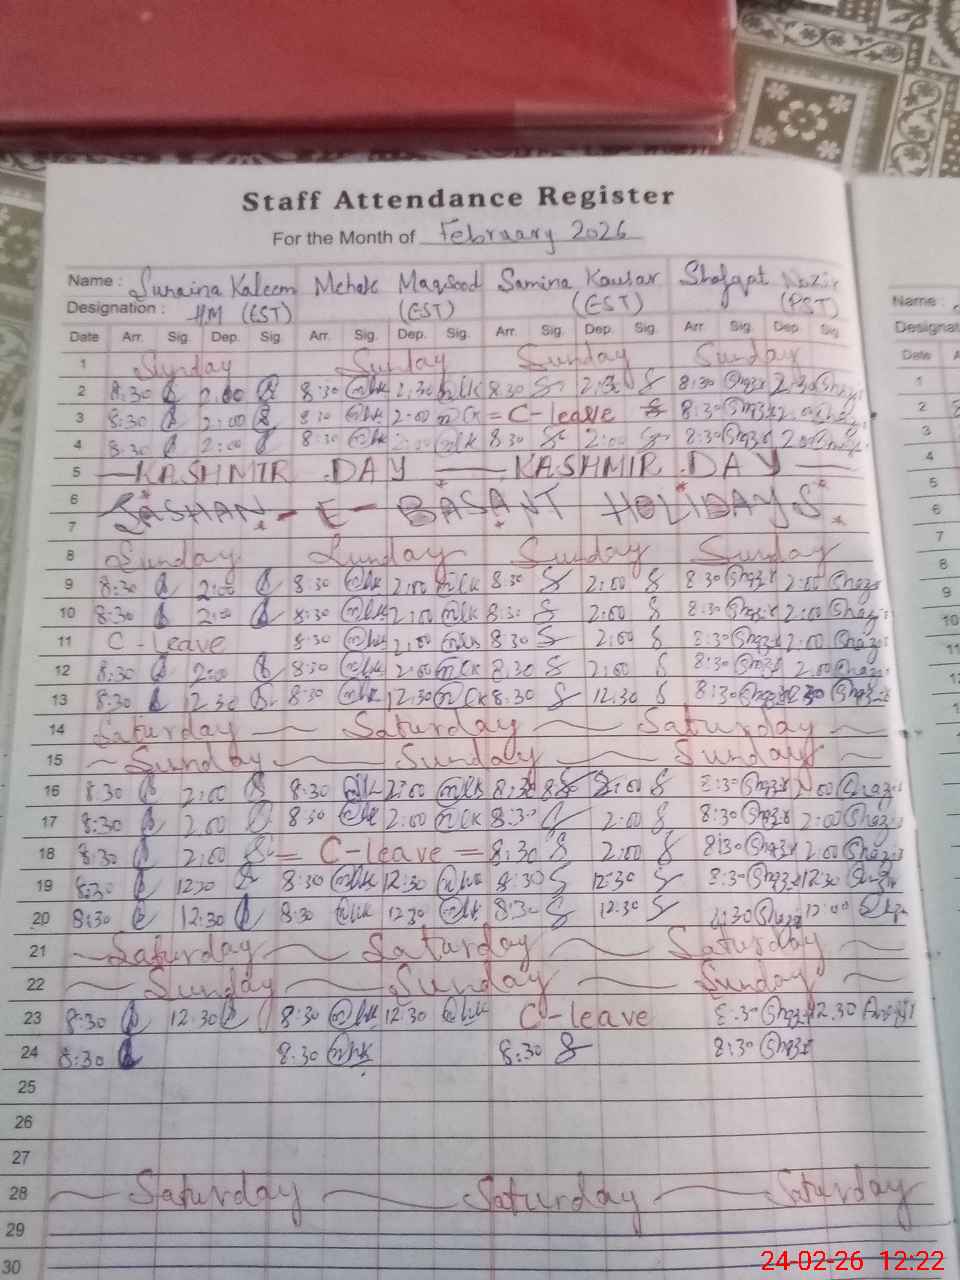 Staff Attendance Register
For the Month of February 2026
Name : Sunaina Kaleem Mehak Maqsood Samina Kausar Shafqat Nazir
Designation : HM (EST) (EST) (EST) (PST)
Date Arr. Sig. Dep. Sig. Arr. Sig. Dep. Sig. Arr. Sig. Dep. Sig. Arr. Sig. Dep. Sig.
1 Sunday Sunday Sunday Sunday
2 8:30 2:00 8:30 2:30 8:30 2:30 8:30 2:30
3 8:30 2:00 8:30 2:00 = C-leave 8:30 2:00
4 8:30 2:00 8:30 2:00 8:30 2:00 8:30 2:00
5 KASHMIR DAY KASHMIR DAY
6
7 JASHAN - E - BASANT HOLIDAYS
8 Sunday Sunday Sunday Sunday
9 8:30 2:00 8:30 2:00 8:30 2:00 8:30 2:00
10 8:30 2:00 8:30 2:00 8:30 2:00 8:30 2:00
11 C-leave 8:30 2:00 8:30 2:00 8:30 2:00
12 8:30 2:00 8:30 2:00 8:30 2:00 8:30 2:00
13 8:30 12:30 8:30 12:30 8:30 12:30 8:30 12:30
14 Saturday Saturday Saturday
15 Sunday Sunday Sunday
16 8:30 2:00 8:30 2:00 8:30 2:00 8:30 2:00
17 8:30 2:00 8:30 2:00 8:30 2:00 8:30 2:00
18 8:30 2:00 = C-leave = 8:30 2:00 8:30 2:00
19 8:30 12:30 8:30 12:30 8:30 12:30 8:30 12:30
20 8:30 12:30 8:30 12:30 8:30 12:30 8:30 12:00
21 Saturday Saturday Saturday
22 Sunday Sunday Sunday
23 8:30 12:30 8:30 12:30 C-leave 8:30 12:30
24 8:30 8:30 8:30 8:30
25
26
27
28 Saturday Saturday Saturday
29
30
Name :
Designat
Date
1
2
3
4
5
6
7
8
9
10
11
24-02-26 12:22